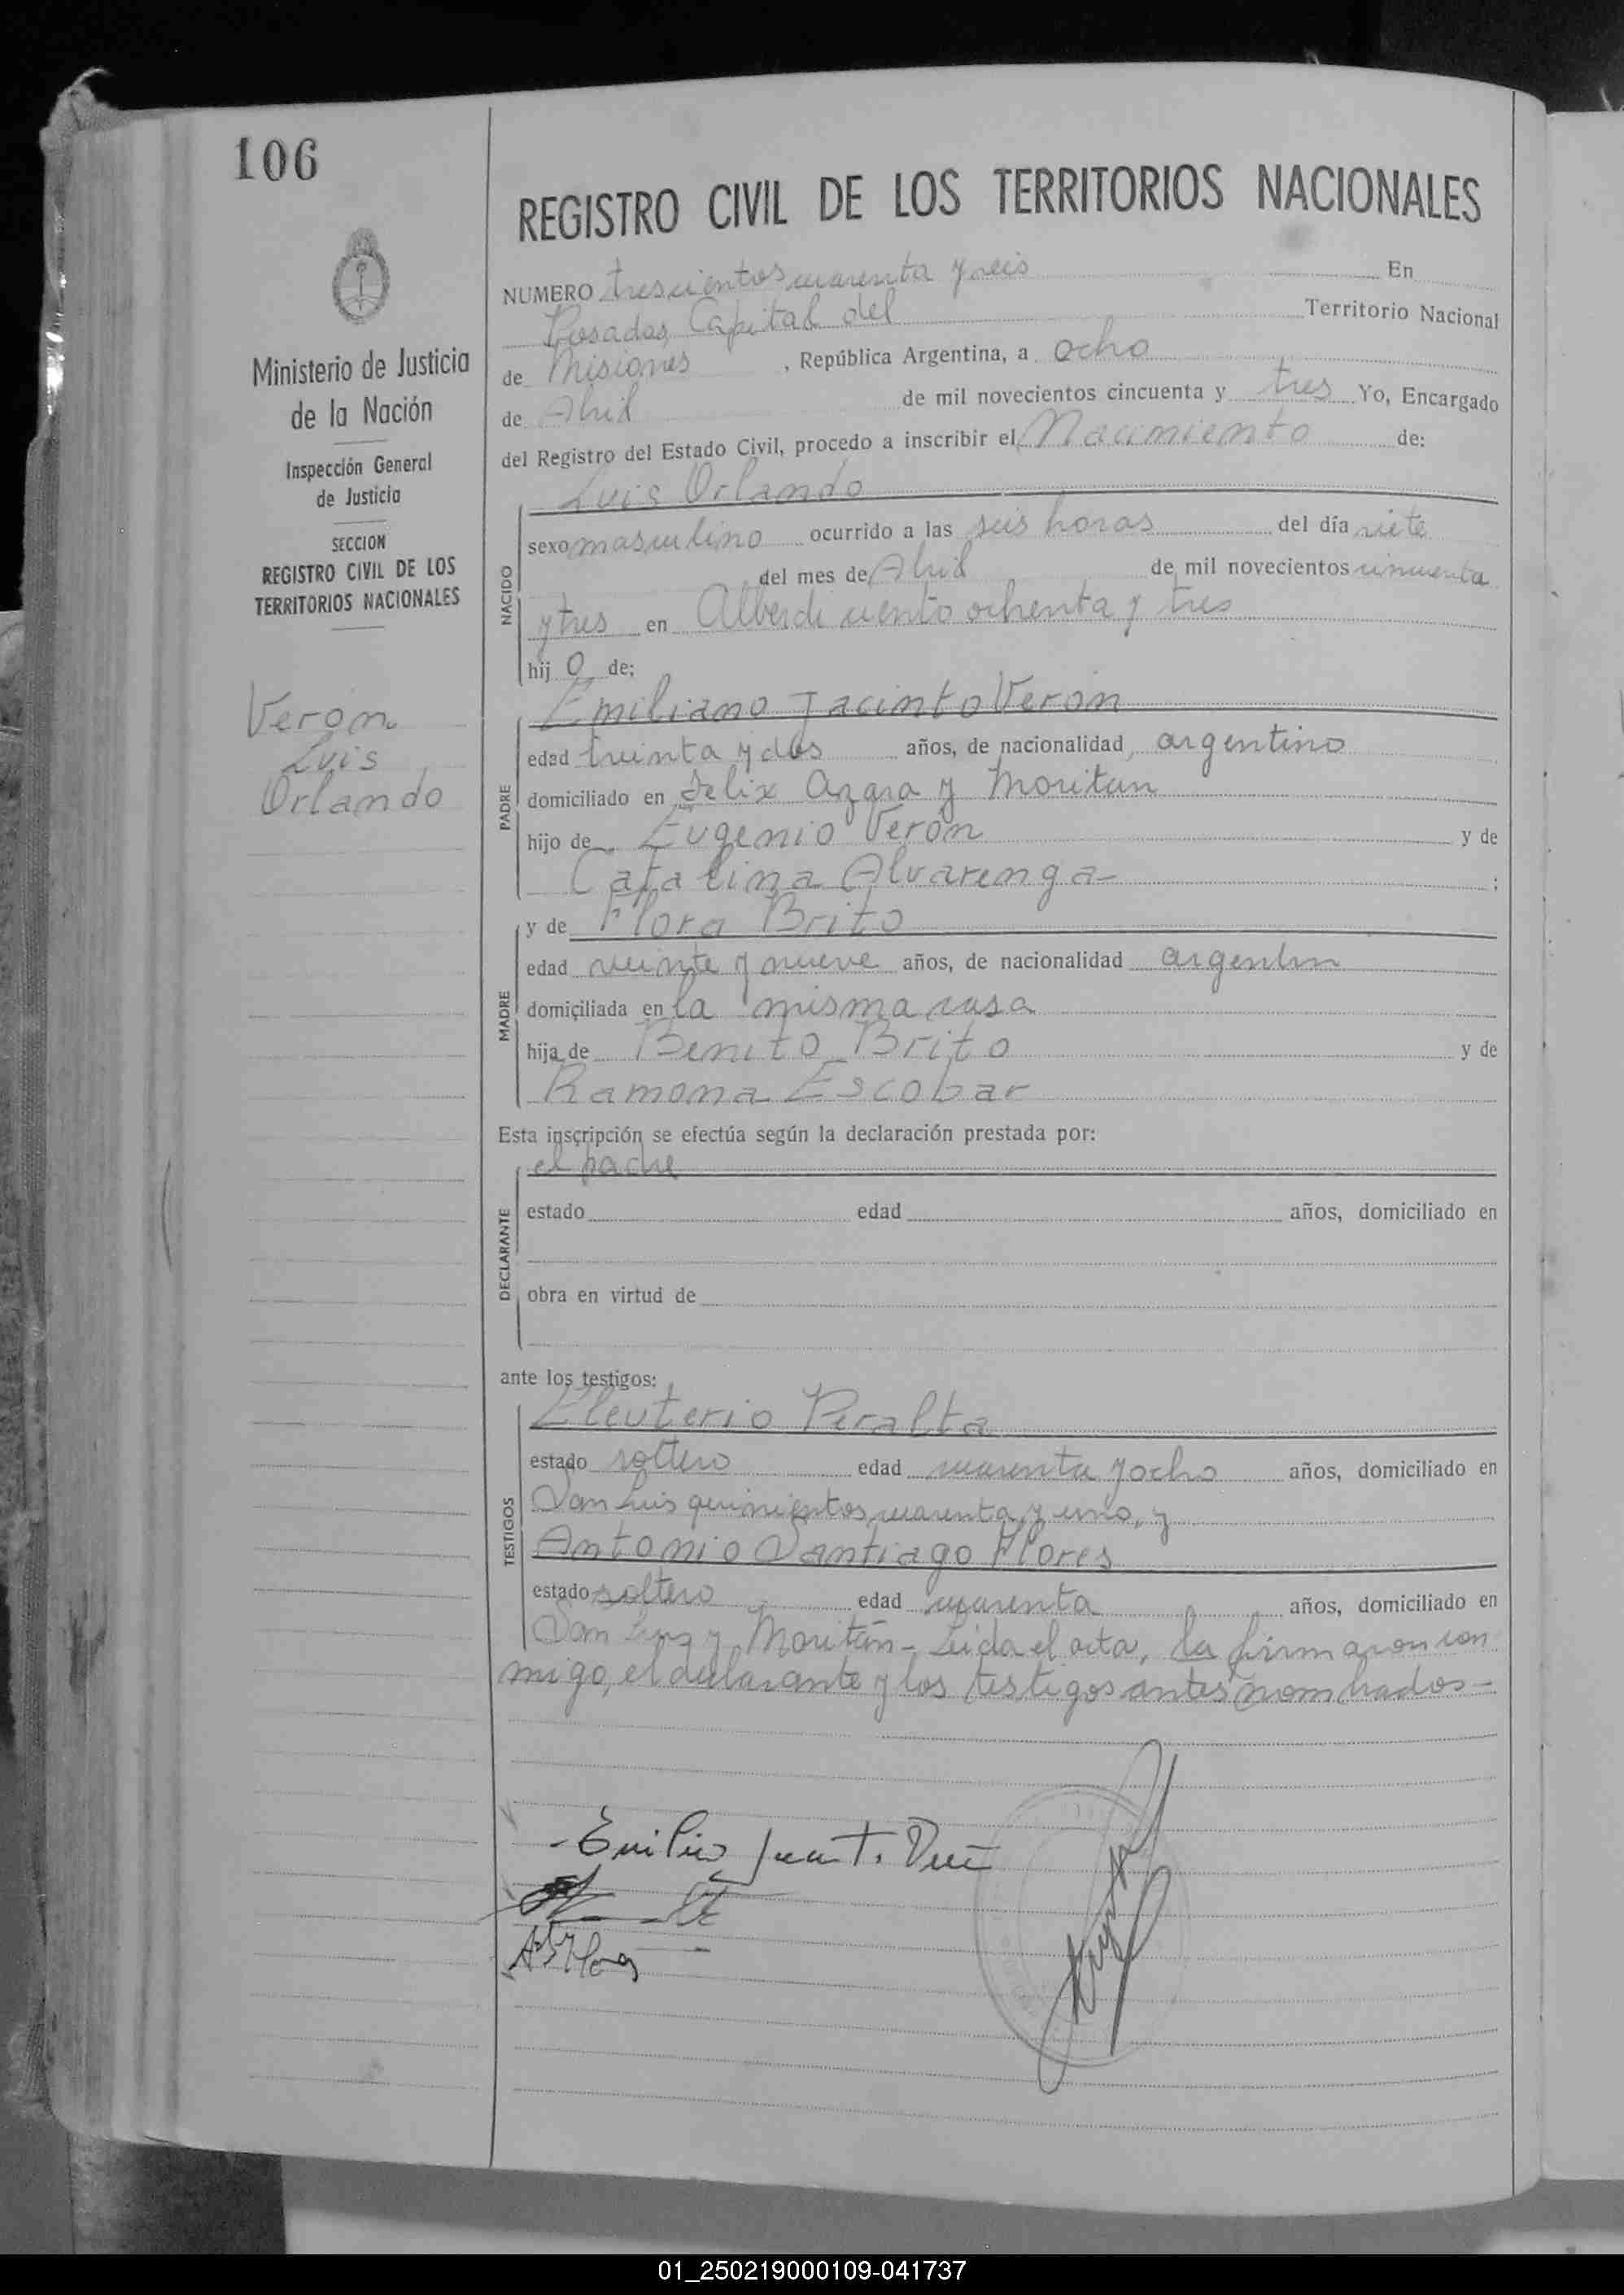 106
Ministerio de Justicia
de la Nación
Inspección General
de Justicia
SECCION
REGISTRO CIVIL DE LOS
TERRITORIOS NACIONALES
Veron
Luis
Orlando
REGISTRO CIVIL DE LOS TERRITORIOS NACIONALES
NUMERO trescientos cuarenta y seis En
Posadas, Capital del Territorio Nacional
de Misiones, República Argentina, a ocho
de Abril de mil novecientos cincuenta y tres Yo, Encargado
del Registro del Estado Civil, procedo a inscribir el Nacimiento de:
Luis Orlando
NACIDO
sexo masculino ocurrido a las seis horas del día siete
del mes de Abril de mil novecientos cincuenta
y tres en Alberdi ciento ochenta y tres
hij o de:
Emiliano Jacinto Veron
PADRE
edad treinta y dos años, de nacionalidad argentino
domiciliado en Felix Azara y Moritan
hijo de Eugenio Veron y de
Catalina Alvarenga ;
y de Flora Brito
MADRE
edad veinte y nueve años, de nacionalidad argentin
domiciliada en la misma casa
hija de Benito Brito y de
Ramona Escobar
Esta inscripción se efectúa según la declaración prestada por:
el padre
DECLARANTE
estado edad años, domiciliado en
obra en virtud de
ante los testigos:
Eleuterio Peralta
TESTIGOS
estado soltero edad cuarenta y ocho años, domiciliado en
San Luis quinientos cuarenta y uno, y
Antonio Santiago Flores
estado soltero edad cuarenta años, domiciliado en
San Luis y Moritán - Leida el acta, la firmaron con
migo, el declarante y los testigos antes nombrados -
01_250219000109-041737